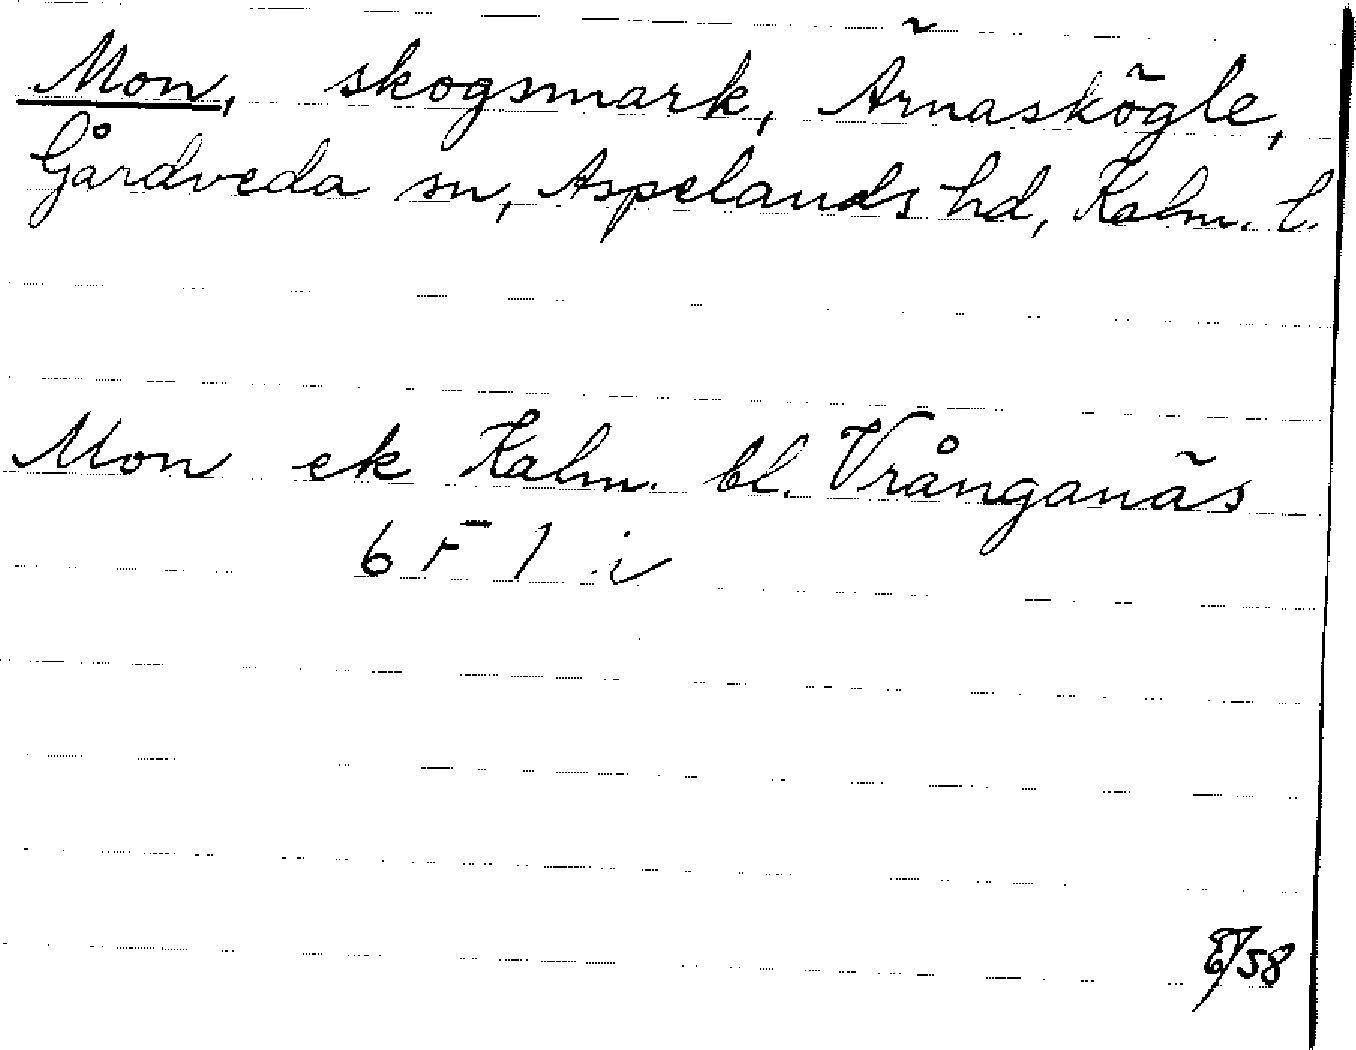 Mon, skogsmark, Ärnaskögle,
Gårdveda sn, Aspelands hd, Kalm. l.
Mon ek Kalm. bl. Vrånganäs
6 F 1 i